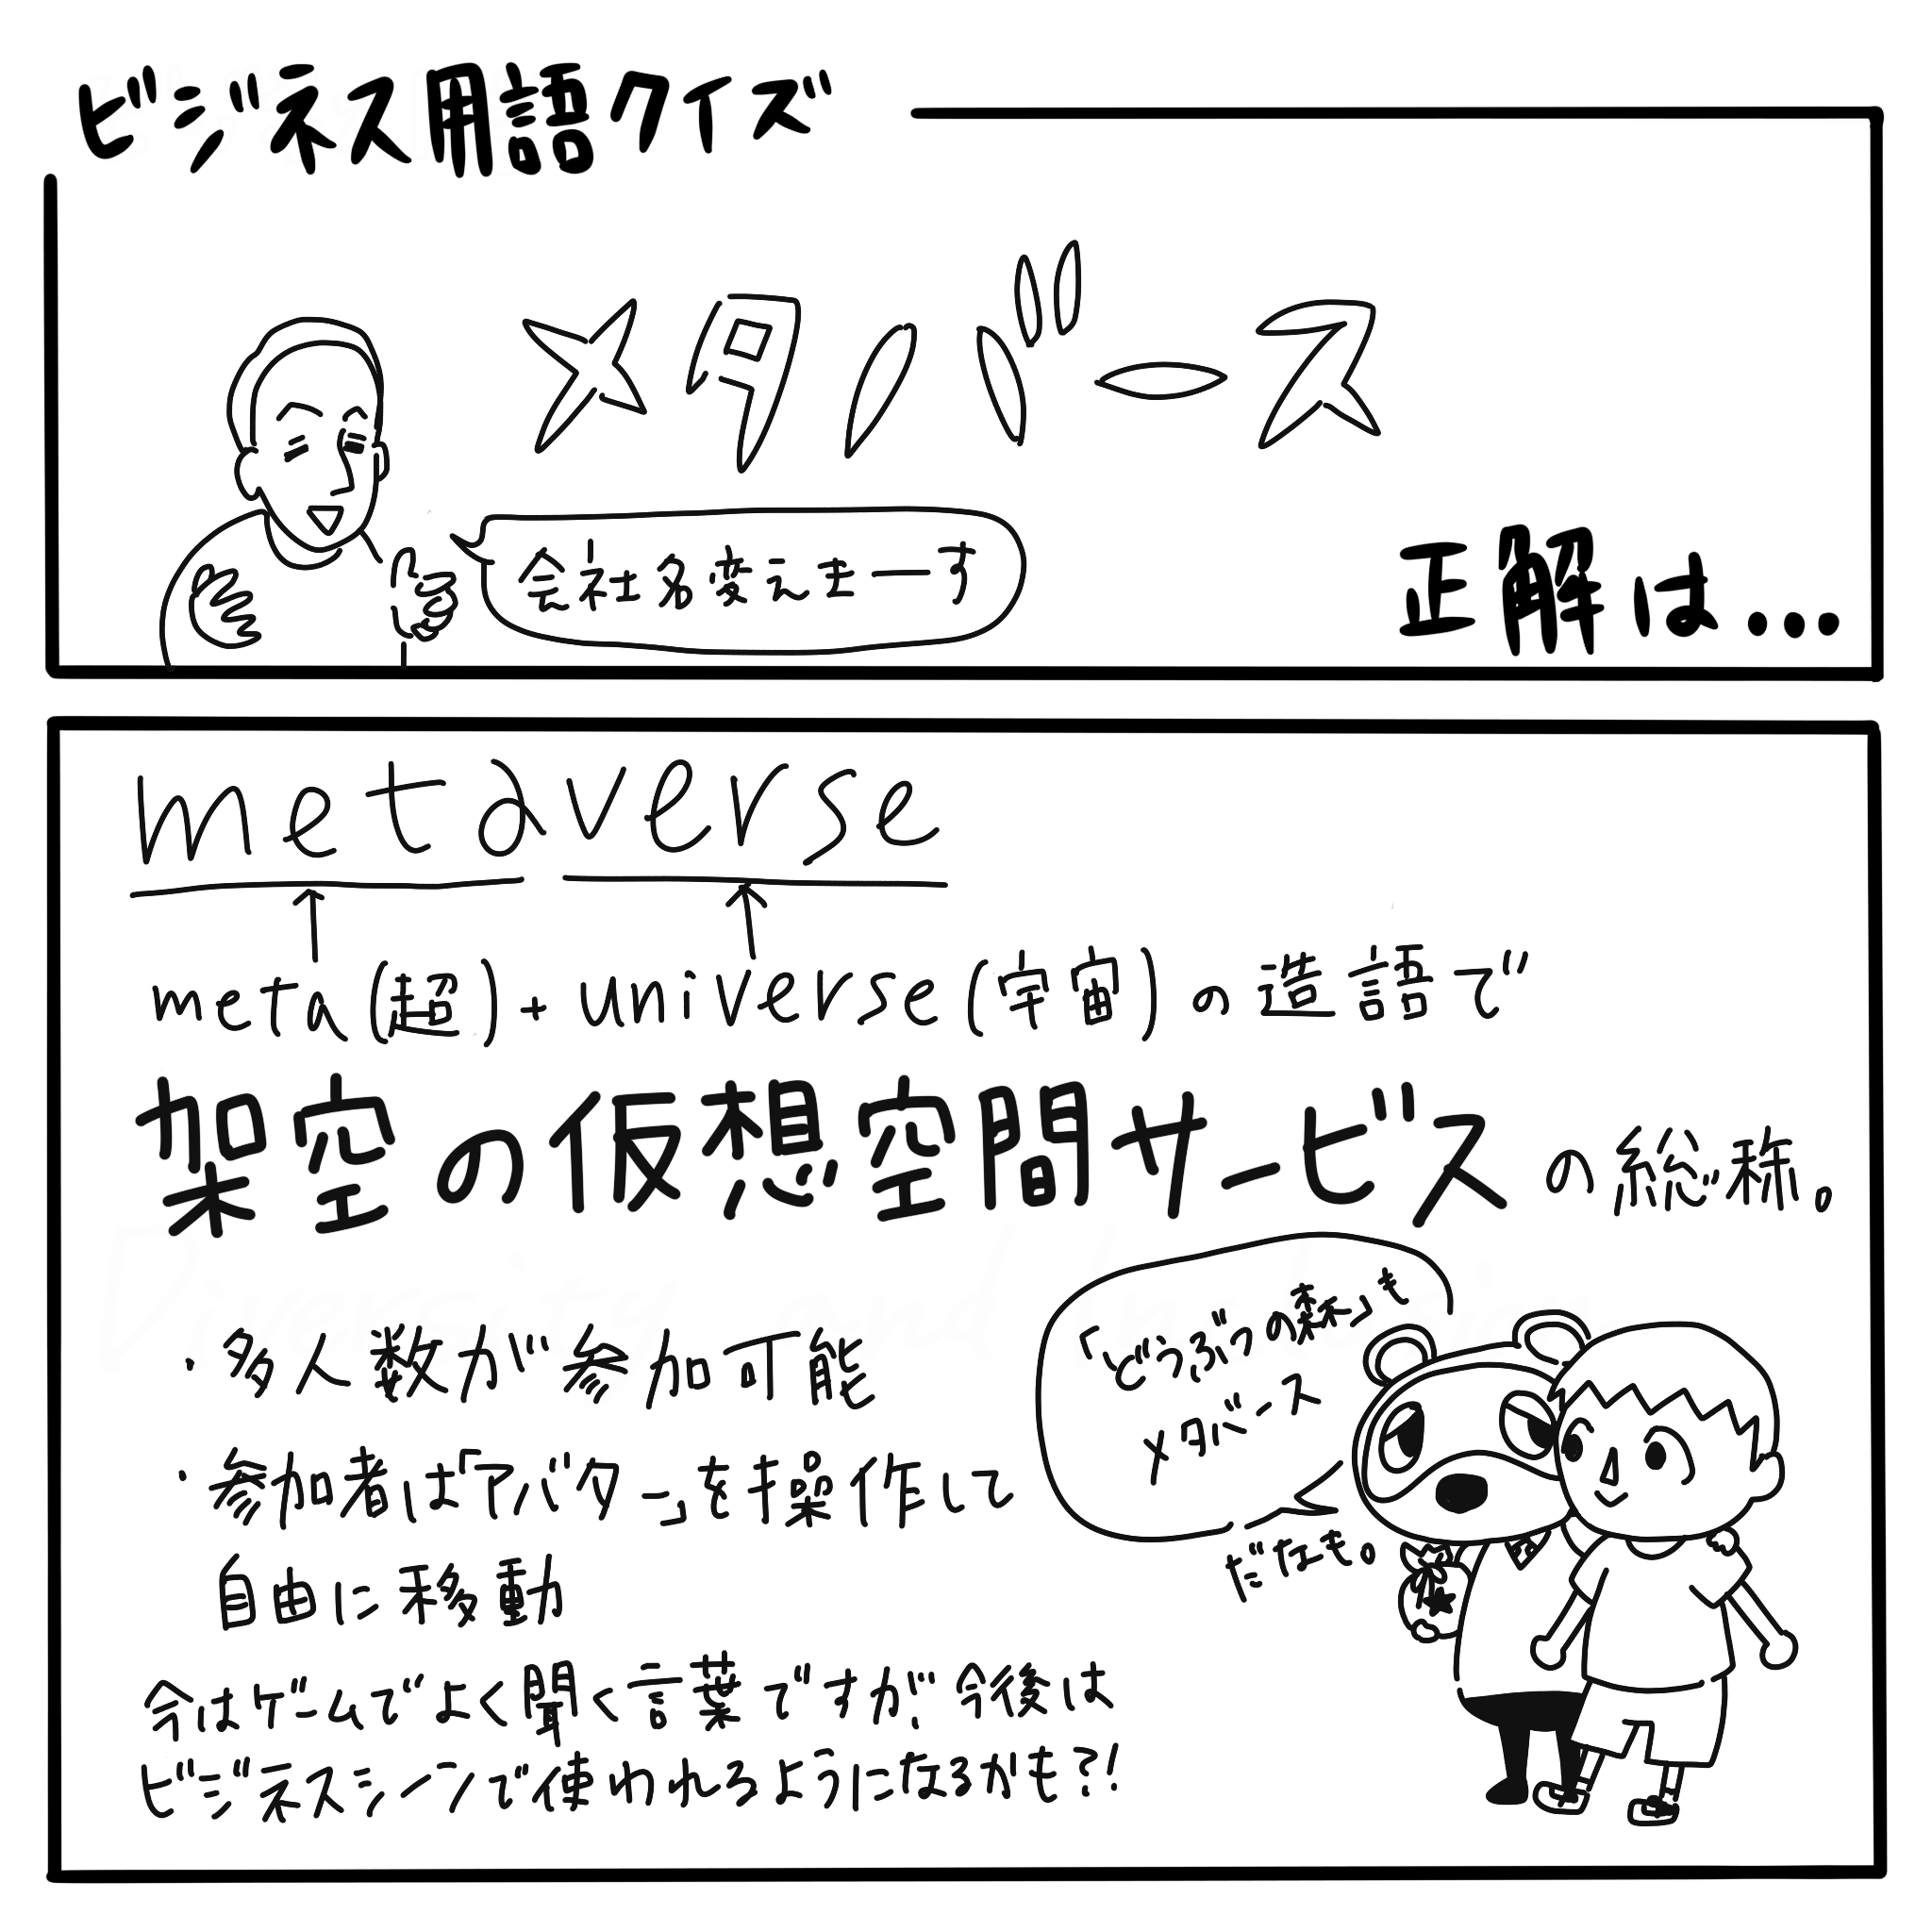 ビジネス用語クイズ
メタバース
会社名変えまーす
正解は...
metaverse
meta(超)+universe(宇宙)の造語で
架空の仮想空間サービスの総称。
・多人数が参加可能
・参加者は「アバター」を操作して
自由に移動
「どうぶつの森」も
メタバース
だなも。
今はゲームでよく聞く言葉ですが、今後は
ビジネスシーンで使われるようになるかも?!